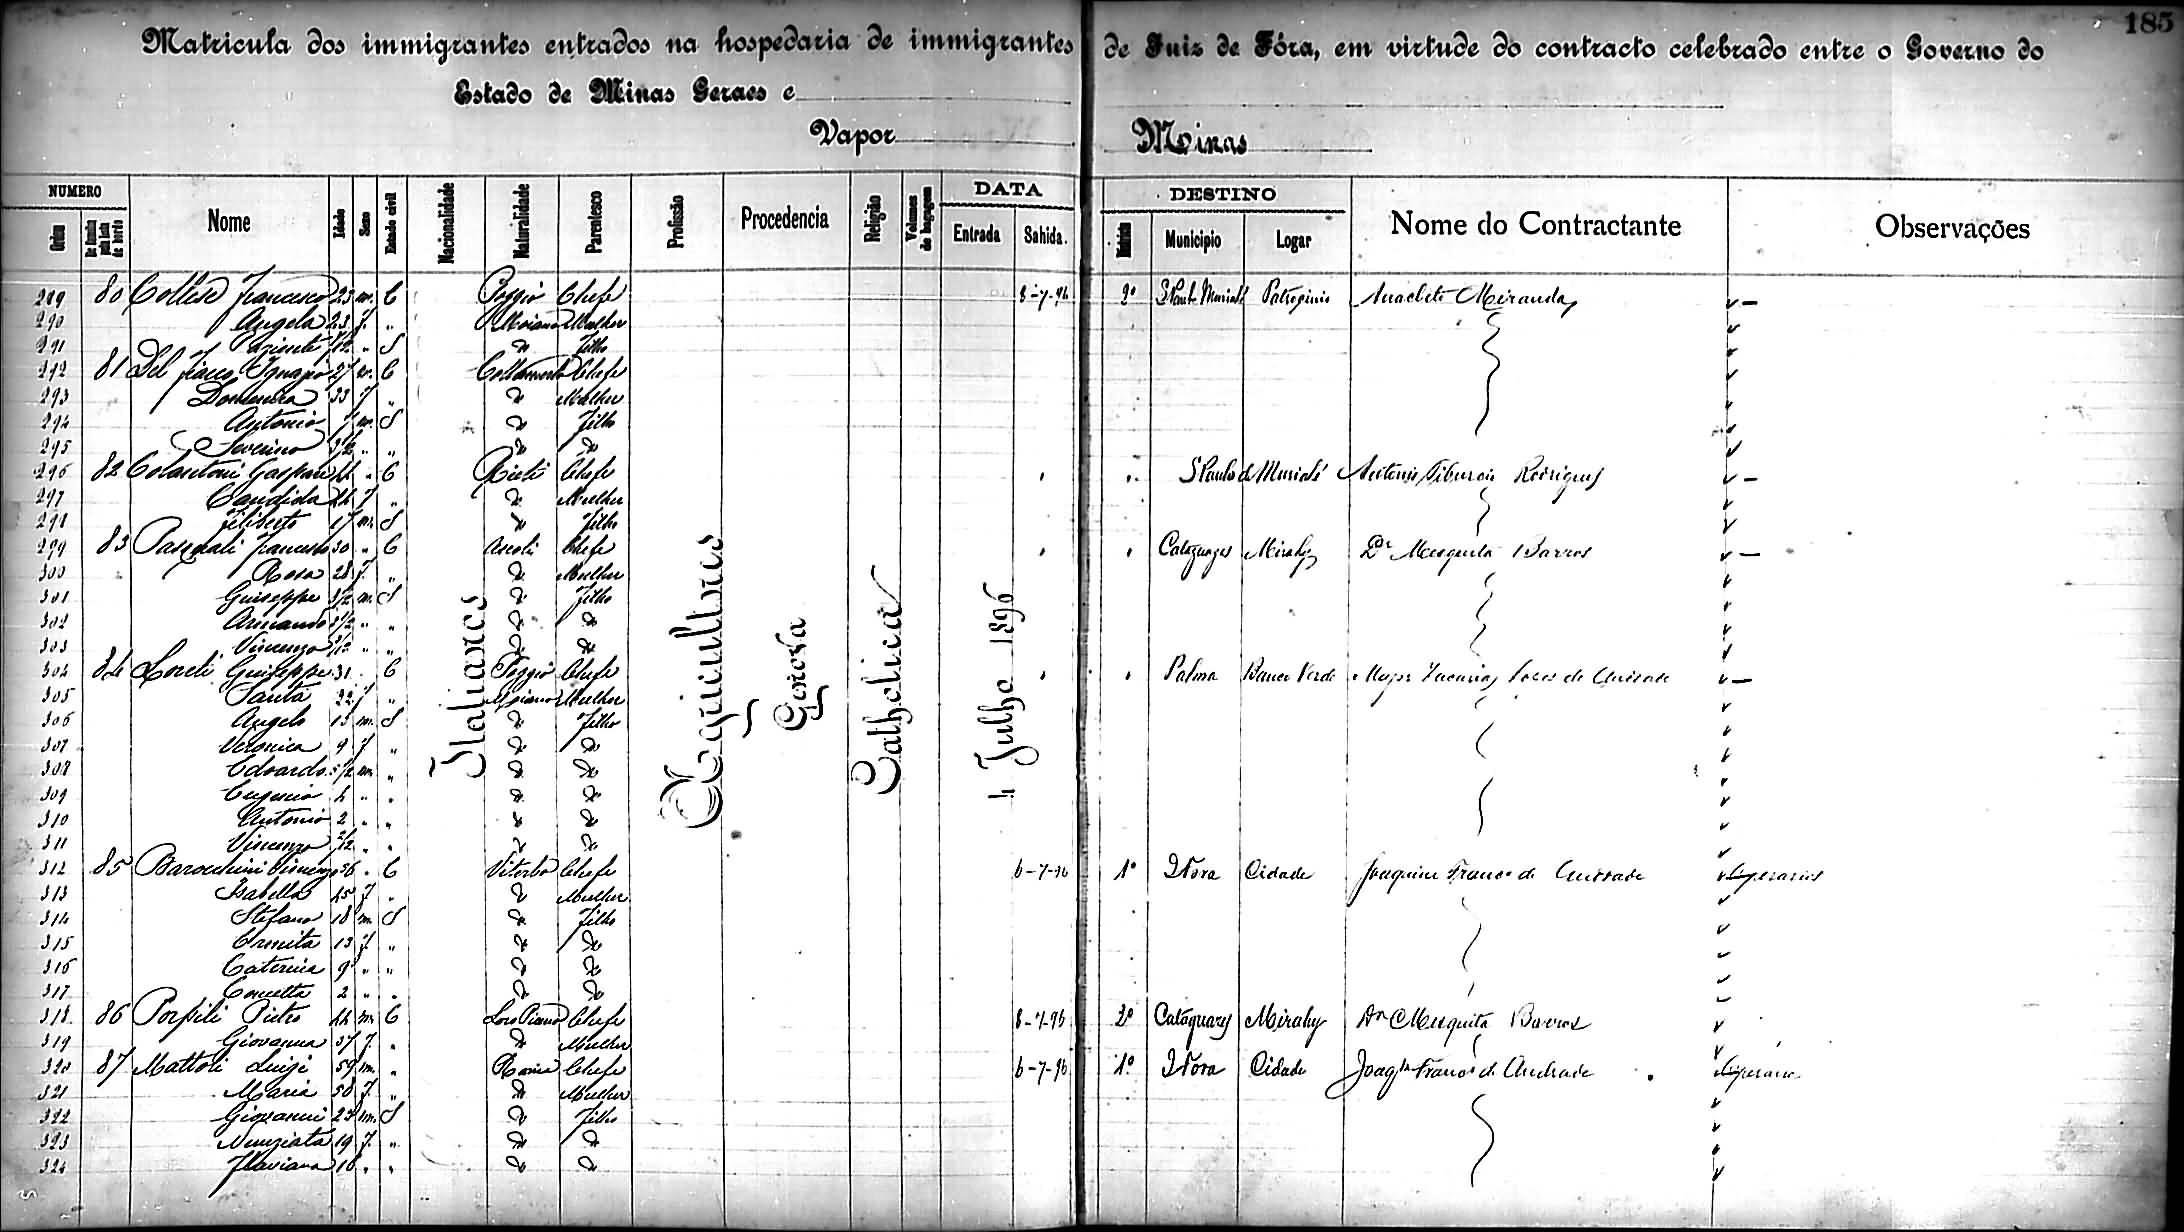 185
Matricula dos immigrantes entrados na hospedaria de immigrantes de Juiz de Fóra, em virtude do contracto celebrado entre o Governo do
Estado de Minas Geraes e
Vapor Minas
NUMERO DATA DESTINO
Ordem Nome Idade Sexo Estado civil Nacionalidade Naturalidade Parentesco Profissão Procedencia Religião Volumes de bagagem Entrada Sahida. Municipio Logar Nome do Contractante Observações
Italianos
Agricultores
Genova
Catholica
4 Julho 1896
289 80 Francesco 23 m. C Poggio Chefe 8-7-96 2º S Paulo Muriahé Patrocinio Anacleto Miranda
290 Angela 23 f. " Moiano Mulher
291 " S " Filho
292 81 Del 27 m. C Chefe
293 Domenica 33 f " " Mulher
294 Antonio 7 m. S " Filho
295 Severino " " " "
296 82 Colantoni Gaspare 44 " C Rieti Chefe " " S Paulo de Muriahé Antonio Tiburcio Rodrigues
297 Candida 44 f " " Mulher
298 Filiberto 17 m. S " Filho
299 83 Pasquali Francesco 30 " C Ascoli Chefe " " Cataguazes Mirahy Dr Mesquita Barros
300 Rosa 28 f. " " Mulher
301 Guiseppe m. S " Filho
302 Armando " " " "
303 Vincenzo " " " "
304 84 Loreti Guiseppe 31 " C Poggio Chefe " " Palma Banco Verde Major Zacarias de Andrade
305 Santa 32 f " Moiano Mulher
306 Angelo 13 m. S " Filho
307 Veronica 9 f " " "
308 Edoardo m. " " "
309 Eugenio 4 " " " "
310 Antonio 2 " " " "
311 Vincenzo " " " "
312 85 Barocchini Vincenzo 56 " C Viterbo Chefe 6-7-96 1º JFora Cidade Joaquim Franco de Andrade Operarios
313 Isabella 45 f " " Mulher
314 Stefano 18 m S " Filho
315 Ermita 13 f. " " "
316 Caterina 9 " " " "
317 Concetta 2 " " " "
318 86 Porfili Pietro 44 m. C Loro Piano Chefe 8-7-96 2º Cataguazes Mirahy Dr Mesquita Barros
319 Giovanna 37 f. " " Mulher
320 87 Mattoli Luigi 59 m. " Roma Chefe 6-7-96 1º JFora Cidade Joaqm Franco de Andrade Operario
321 Maria 58 f. " " Mulher
322 Giovanni 23 m. S " Filho
323 Nunziata 19 f. " " "
324 Flaviana 16 " " " "